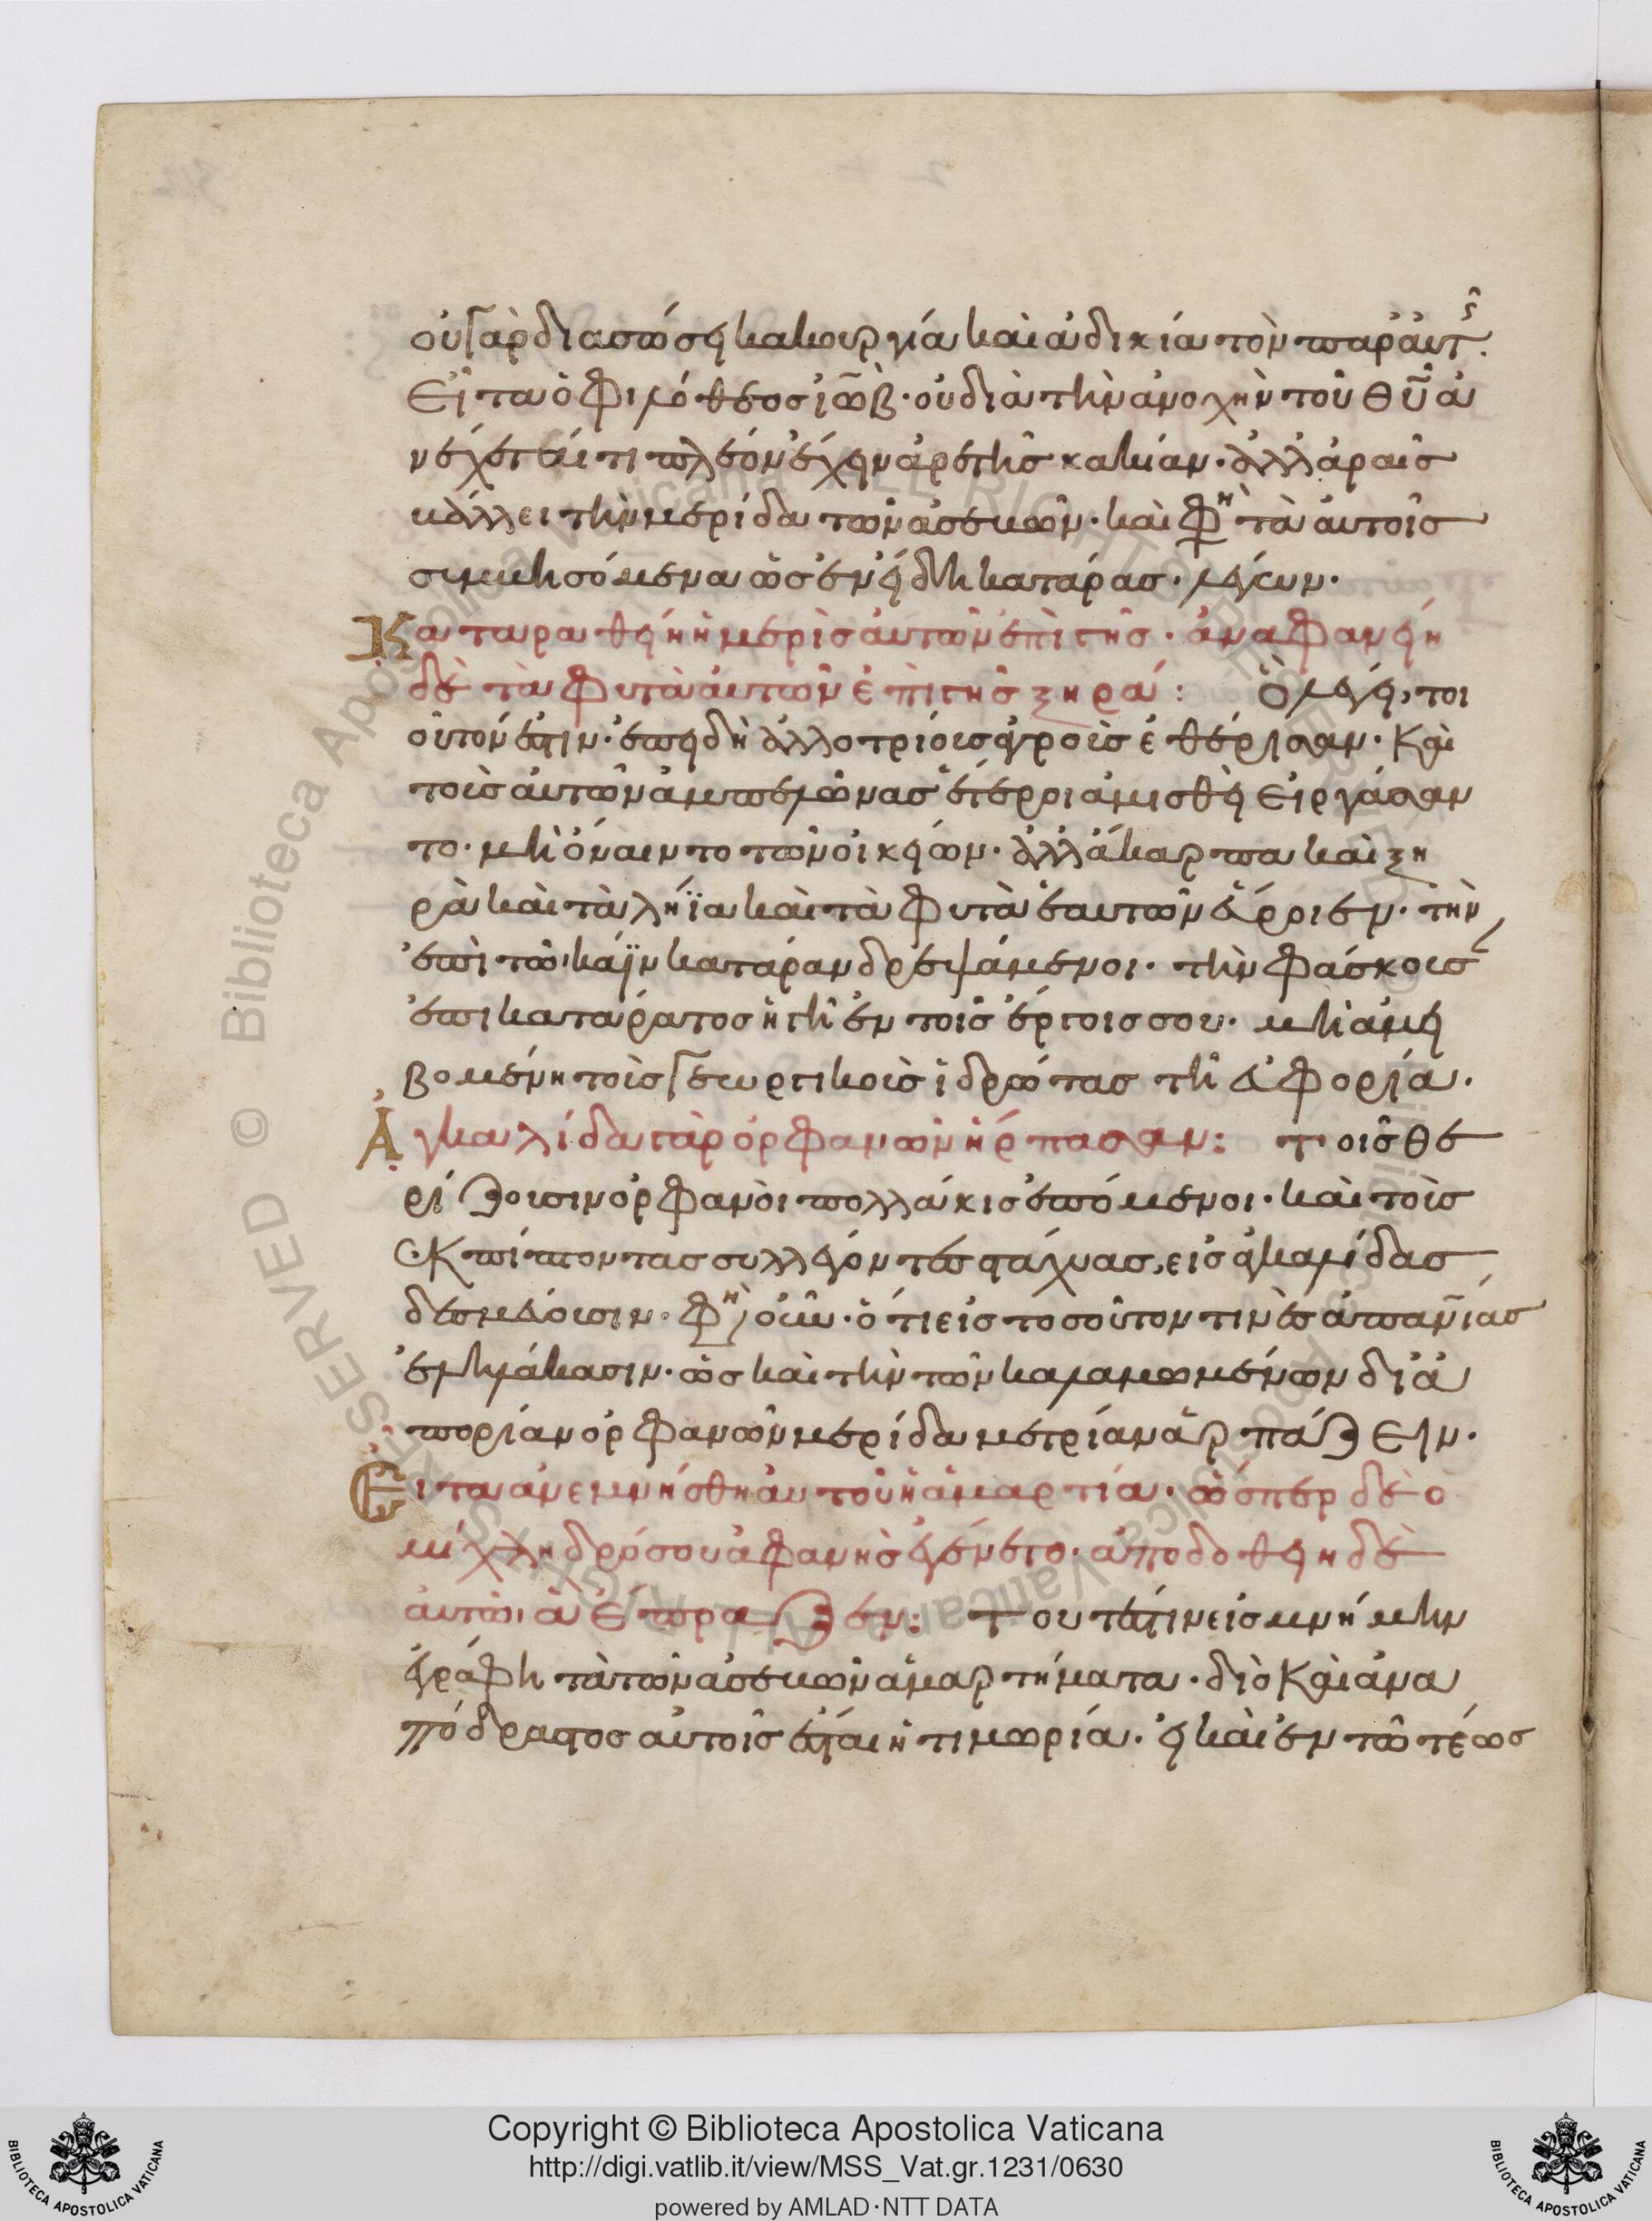 οὐ γὰρ διασώσει κακουργία καὶ ἀδικία τὸν παρ' αὐτ
Εἶτα ὁ φιλόθεος ἰὼβ· οὐ διὰ τὴν ἀνοχὴν τοῦ θυ ἀ
νέχεται τι πλέον ἔχειν ἀρετῆς κακίαν· ἀλλ' ἀραῖς
βάλλει τὴν μερίδα τῶν ἀσεβῶν· καὶ φη τὰ αὐτοῖς
συμβησόμενα ὡς ἐν εἴδει κατάρας· λέγων·
Καταραθείη ἡ μερὶς αὐτῶν ἐπὶ γῆς· ἀναφανείη
δὲ τὰ φυτὰ αὐτῶν ἐπὶ γῆς ξηρά: Ὃ λέγει, τοι
οῦτόν ἐστιν· ἐπειδὴ ἀλλοτρίους ἀγροὺς ἐθέρισαν· Καὶ
τοὺς αὐτῶν ἀμπελῶνας ἕτεροι ἀμισθεὶ εἰργάσαν
το· μὴ ὄναιντο τῶν οἰκείων· ἀλλ' ἄκαρπα καὶ ξη
ρὰ καὶ τὰ λήϊα καὶ τὰ φυτὰ ἑαυτῶν εὕροιεν· τὴν
ἐπὶ τῷ κάϊν κατάραν δρεψάμενοι· τὴν φάσκους
ἐπικατάρατος ἡ γῆ ἐν τοῖς ἔργοις σου· μὴ ἀμει
βομένη τοὺς γεωργικοὺς ἱδρῶτας τῇ εὐφορίᾳ·
Ἀγκαλίδα γὰρ ὀρφανῶν ἥρπασαν: Τοῖς θε
ρίζουσιν ὀρφανοὶ πολλάκις ἑπόμενοι· καὶ τοὺς
ἐκπίπτοντας συλλέγοντες στάχυας, εἰς ἀγκαλίδας
δεσμεύουσιν· φη οὖν· ὅτι εἰς τοσοῦτόν τινες ἀπανίας
ἐληλάκασιν· ὡς καὶ τὴν τῶν καλαμωμένων δι' ἀ
πορίαν ὀρφανῶν μερίδα μετρίαν ἁρπάζειν·
Εἶτα ἀνεμνήσθη αὐτοῦ ἡ ἁμαρτία· ὥσπερ δὲ ὁ
μίχλη δρόσου ἀφανὴς ἐγένετο· ἀποδοθείη δὲ
αὐτῷ ἃ ἔπραξεν: Τουτέστιν εἰς μνήμην
ἐγράφη τὰ τῶν ἀσεβῶν ἁμαρτήματα· διὸ καὶ ἀνα
πόδραστος αὐτοῖς ἐστὶν ἡ τιμωρία· εἰ καὶ ἐν τῷ τέως
Copyright © Biblioteca Apostolica Vaticana
http://digi.vatlib.it/view/MSS_Vat.gr.1231/0630
powered by AMLAD·NTT DATA
BIBLIOTECA APOSTOLICA VATICANA
BIBLIOTECA APOSTOLICA VATICANA